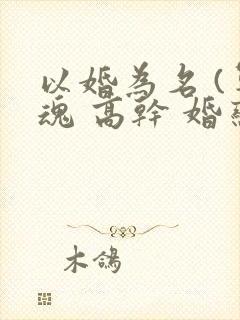 以婚為名(
魂 高幹 婚
木鴿